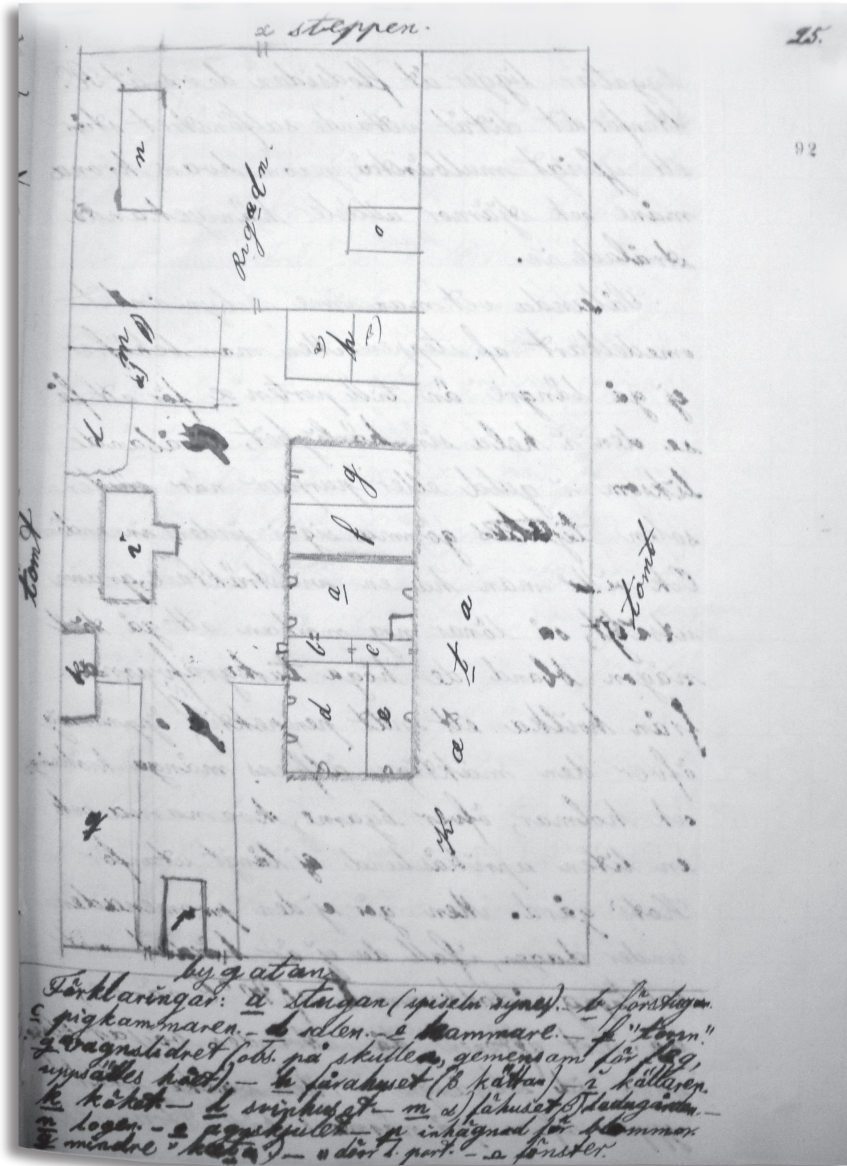 α steppen.
25.
92
n
Rigadn.
o
m
α)
β
h
α)
l
g
f
tomt
i
a
tomt
b
c
k
d
e
Kata
q
p
bygatan
Förklaringar: a stugan (spiseln synes). – b förstugan.
c pigkammaren. – d salen. – e kammare. – f "toorn"
g vagnslidret (obs. på skullen, gemensam för f o g,
uppsättes höet). – h fårahuset (β kättan) – i källaren.
k köket – l svinhuset – m α) fähuset β) ladugården. –
n logen. – o agnskjulet – p inhägnad för blommor.
mindre – " dörr l. port. – fönster.